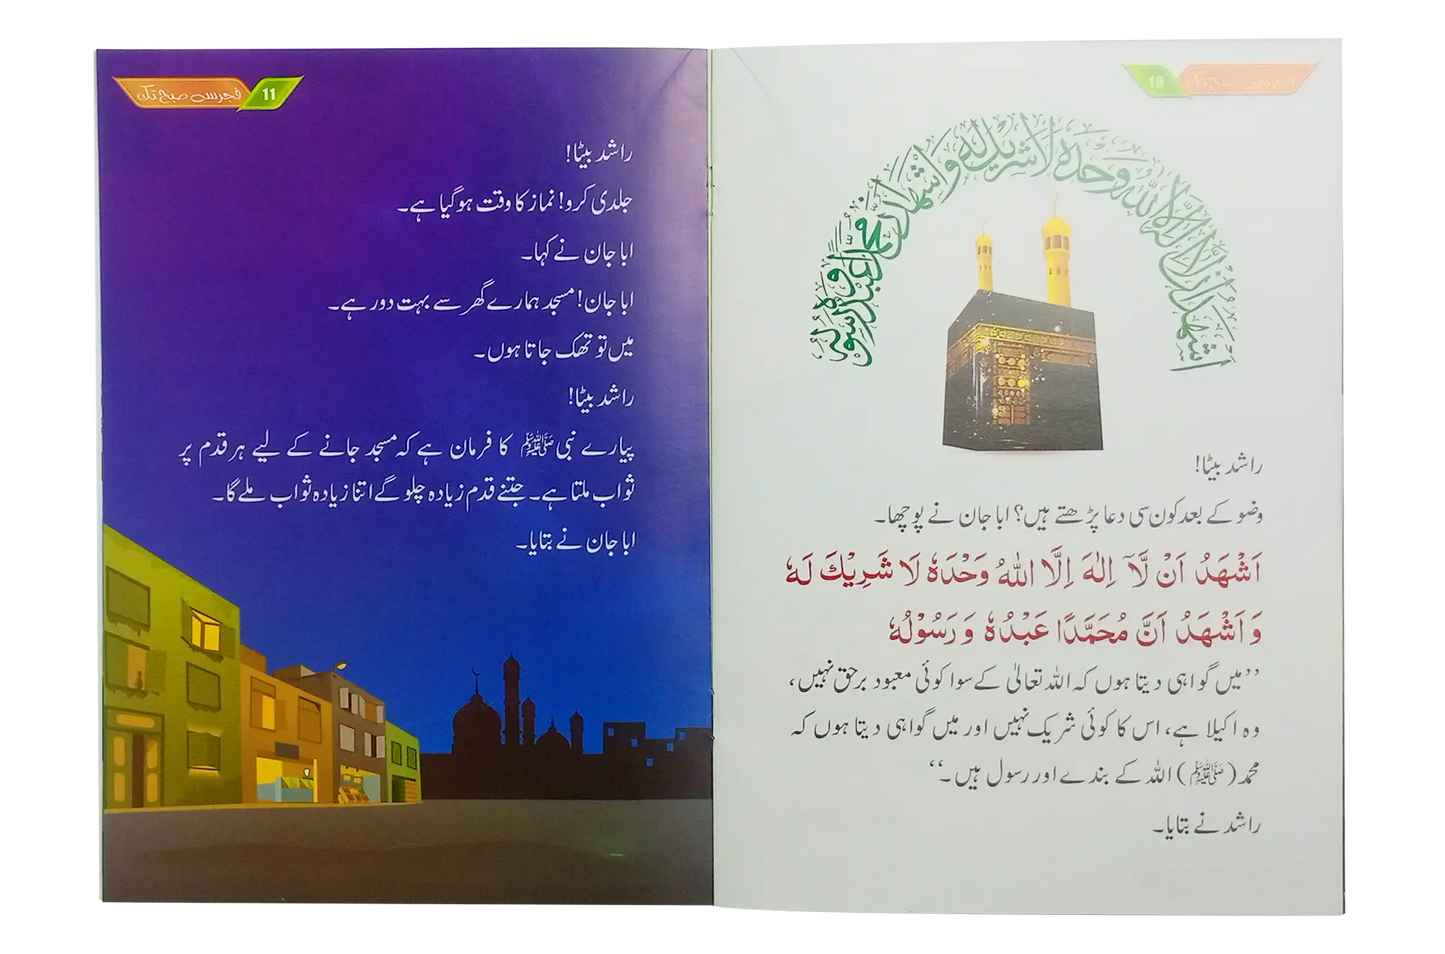 10
فجر سے صبح تک
اشهد ان لا اله الا الله وحده لا شريك له و اشهد ان محمدا عبده و رسوله
راشد بیٹا!
وضو کے بعد کون سی دعا پڑھتے ہیں؟ ابا جان نے پوچھا۔
اَشْهَدُ اَنْ لَّآ اِلٰهَ اِلَّا اللهُ وَحْدَهٗ لَا شَرِيْكَ لَهٗ
وَ اَشْهَدُ اَنَّ مُحَمَّدًا عَبْدُهٗ وَ رَسُوْلُهٗ
’’میں گواہی دیتا ہوں کہ اللہ تعالیٰ کے سوا کوئی معبود برحق نہیں،
وہ اکیلا ہے، اس کا کوئی شریک نہیں اور میں گواہی دیتا ہوں کہ
محمد (ﷺ) اللہ کے بندے اور رسول ہیں۔‘‘
راشد نے بتایا۔
11
فجر سے صبح تک
راشد بیٹا!
جلدی کرو! نماز کا وقت ہو گیا ہے۔
ابا جان نے کہا۔
ابا جان! مسجد ہمارے گھر سے بہت دور ہے۔
میں تو تھک جاتا ہوں۔
راشد بیٹا!
پیارے نبی ﷺ کا فرمان ہے کہ مسجد جانے کے لیے ہر قدم پر
ثواب ملتا ہے۔ جتنے قدم زیادہ چلو گے اتنا زیادہ ثواب ملے گا۔
ابا جان نے بتایا۔